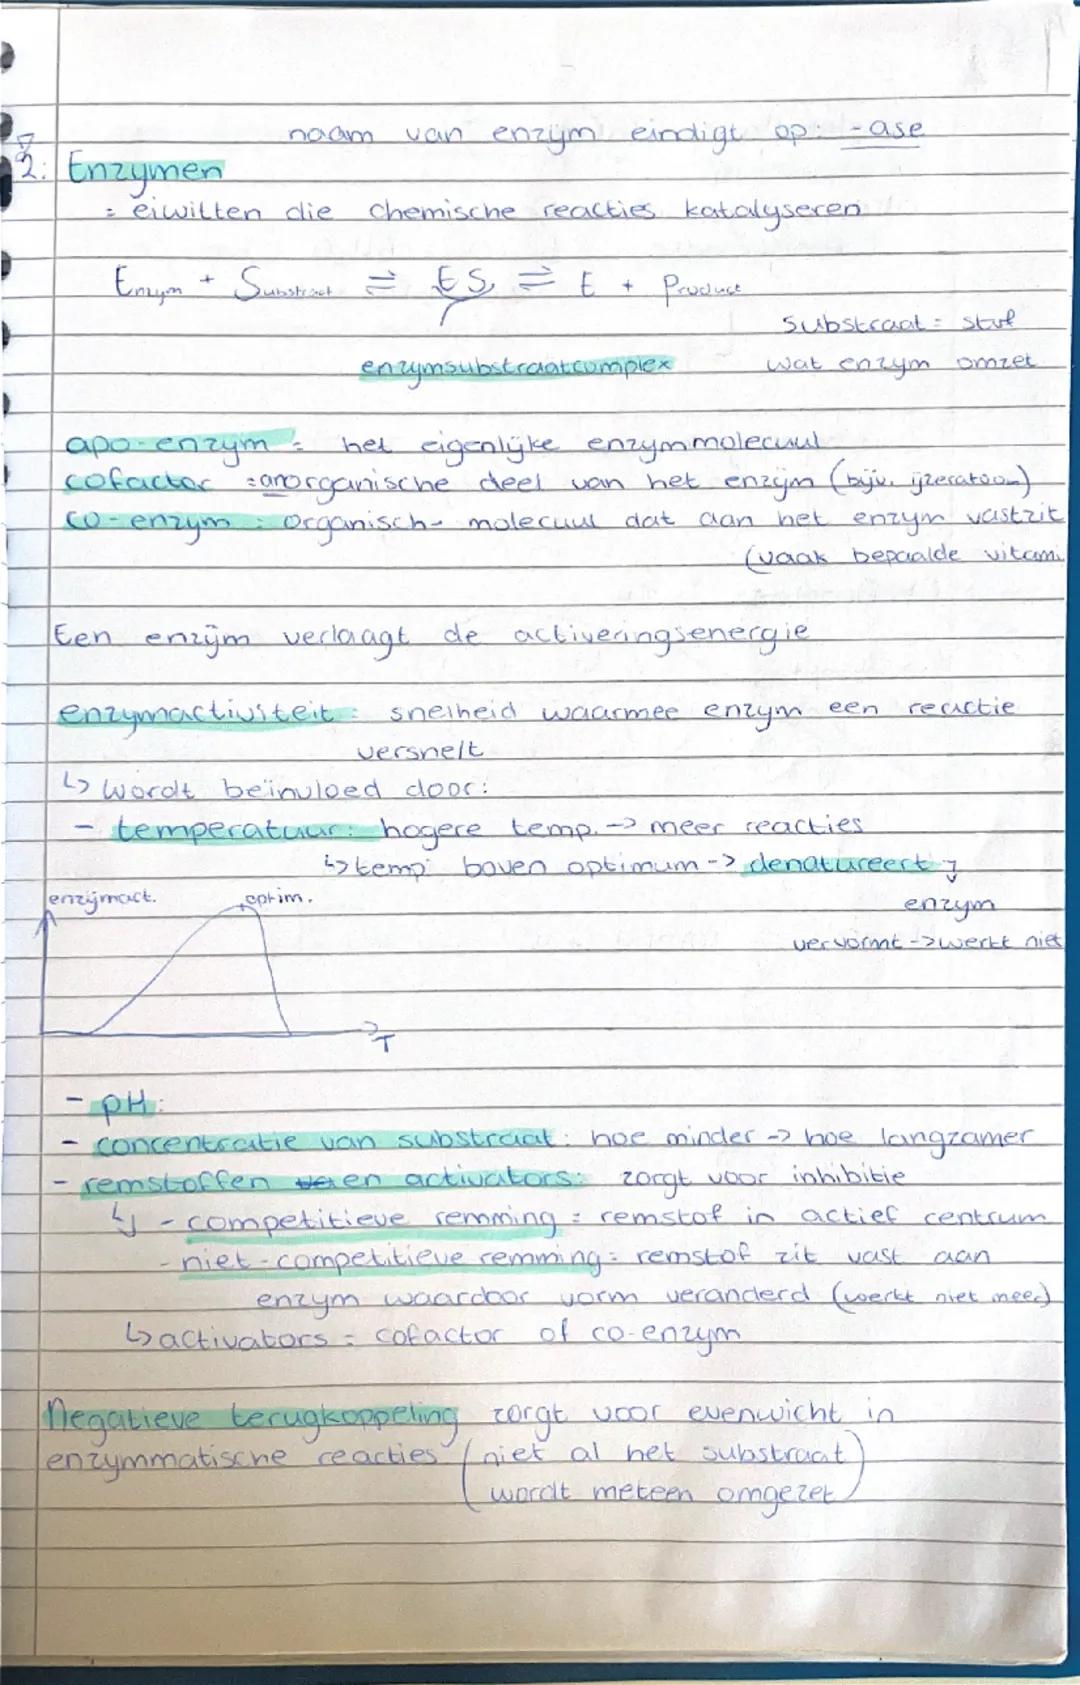 naam van enzym eindigt op: -ase
2: Enzymen
= eiwitten die chemische reacties katalyseren
Enzym + Substraat ⇌ ES ⇌ E + Product
substraat = stof
enzymsubstraatcomplex wat enzym omzet
apo-enzym = het eigenlijke enzymmolecuul
cofactor = anorganische deel van het enzym (bijv. ijzeratoom)
co-enzym = organisch molecuul dat aan het enzym vastzit
(vaak bepaalde vitami
Een enzym verlaagt de activeringsenergie
enzymactiviteit = snelheid waarmee enzym een reactie
versnelt
↳ wordt beïnvloed door:
- temperatuur: hogere temp. -> meer reacties
↳ temp boven optimum -> denatureert
enzymact. optim. enzym
vervormt -> werkt niet
T
- pH:
- concentratie van substraat: hoe minder -> hoe langzamer
- remstoffen en activators: zorgt voor inhibitie
↳ - competitieve remming = remstof in actief centrum
- niet-competitieve remming = remstof zit vast aan
enzym waardoor vorm veranderd (werkt niet meer)
↳ activators = cofactor of co-enzym
Negatieve terugkoppeling zorgt voor evenwicht in
enzymmatische reacties (niet al het substraat
wordt meteen omgezet)